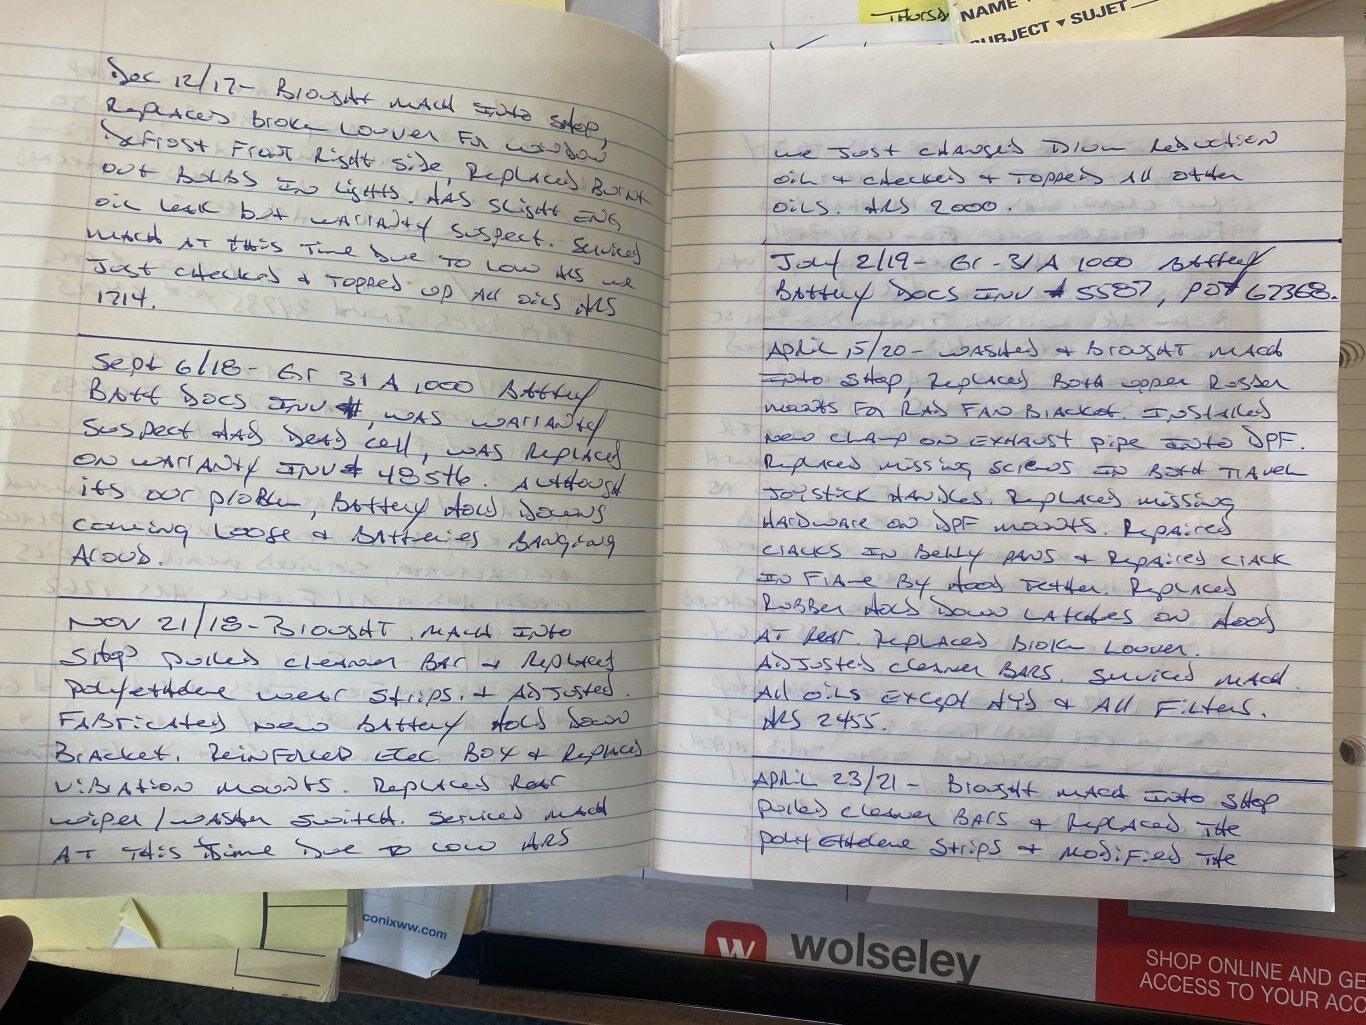 Dec 12/17- Brought mach into shop,
Replaced broken Louver for window
Defrost Front Right side, Replaced Burnt
out Bulbs in lights. Has slight ENG
oil leak but warranty suspect. Serviced
mach at this time Due to low HRS we
Just checked & topped up all oils HRS
1714.
Sept 6/18- Gr 31 A 1000 Battery
Batt Docs INV #, was warranty
suspect Had Dead cell, was Replaced
on warranty INV # 48546. Although
its our problem, Battery Hold Downs
coming Loose & Batteries Banging
Aroud.
NOV 21/18- Brought mach into
shop pulled cleaner Bar & Replaced
polyethelene wear strips. & Adjusted.
Fabricated new Battery Hold Down
Bracket. Reinforced Elec Box & Replaced
vibration mounts. Replaced Rear
wiper/washer switch. Serviced mach
At this time Due to low HRS
we Just changed Drum Reduction
oil & checked & topped all other
oils. HRS 2000.
July 2/19- Gr-31 A 1000 Battery
Battery Docs INV # 5587, PO# 62368.
April 15/20- washed & Brought mach
into shop, Replaced Both upper Rubber
mounts for Rad Fan Bracket. Installed
new clamp on Exhaust pipe into DPF.
Replaced missing screws in Both Travel
Joystick Handles. Replaced missing
Hardware on DPF mounts. Repaired
cracks in Belly pans & Repaired crack
in Frame By Hood Tether. Replaced
Rubber Hold Down Latches on Hood
At Rear. Replaced Broken Louver.
Adjusted cleaner Bars. Serviced mach.
All oils Except HYD & All Filters.
HRS 2455.
April 23/21- Brought mach into shop
pulled cleaner Bars & Replaced the
polyethelene strips & modified the
THURSD
NAME
SUBJECT ▾ SUJET
conixww.com
w wolseley
SHOP ONLINE AND GE
ACCESS TO YOUR ACC